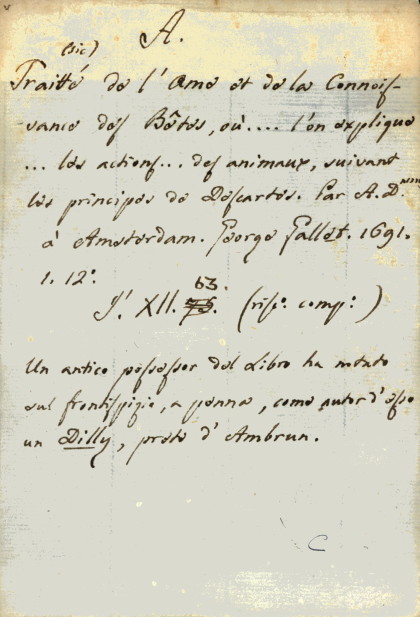 A.
(sic)
Traitté de l'Ame et de la Connois-
sance des Bêtes, où .... l'on explique
... les actions ... des animaux, suivant
les principes de Descartes. Par A. D.***
à Amsterdam. George Gallet. 1691.
1. 12°.
J. XII. 63. (risc. comp.)
Un antico possessor del Libro ha
sul frontispizio, a penna, come autor d'esso
un Dilly, prete d'Ambrun.
C